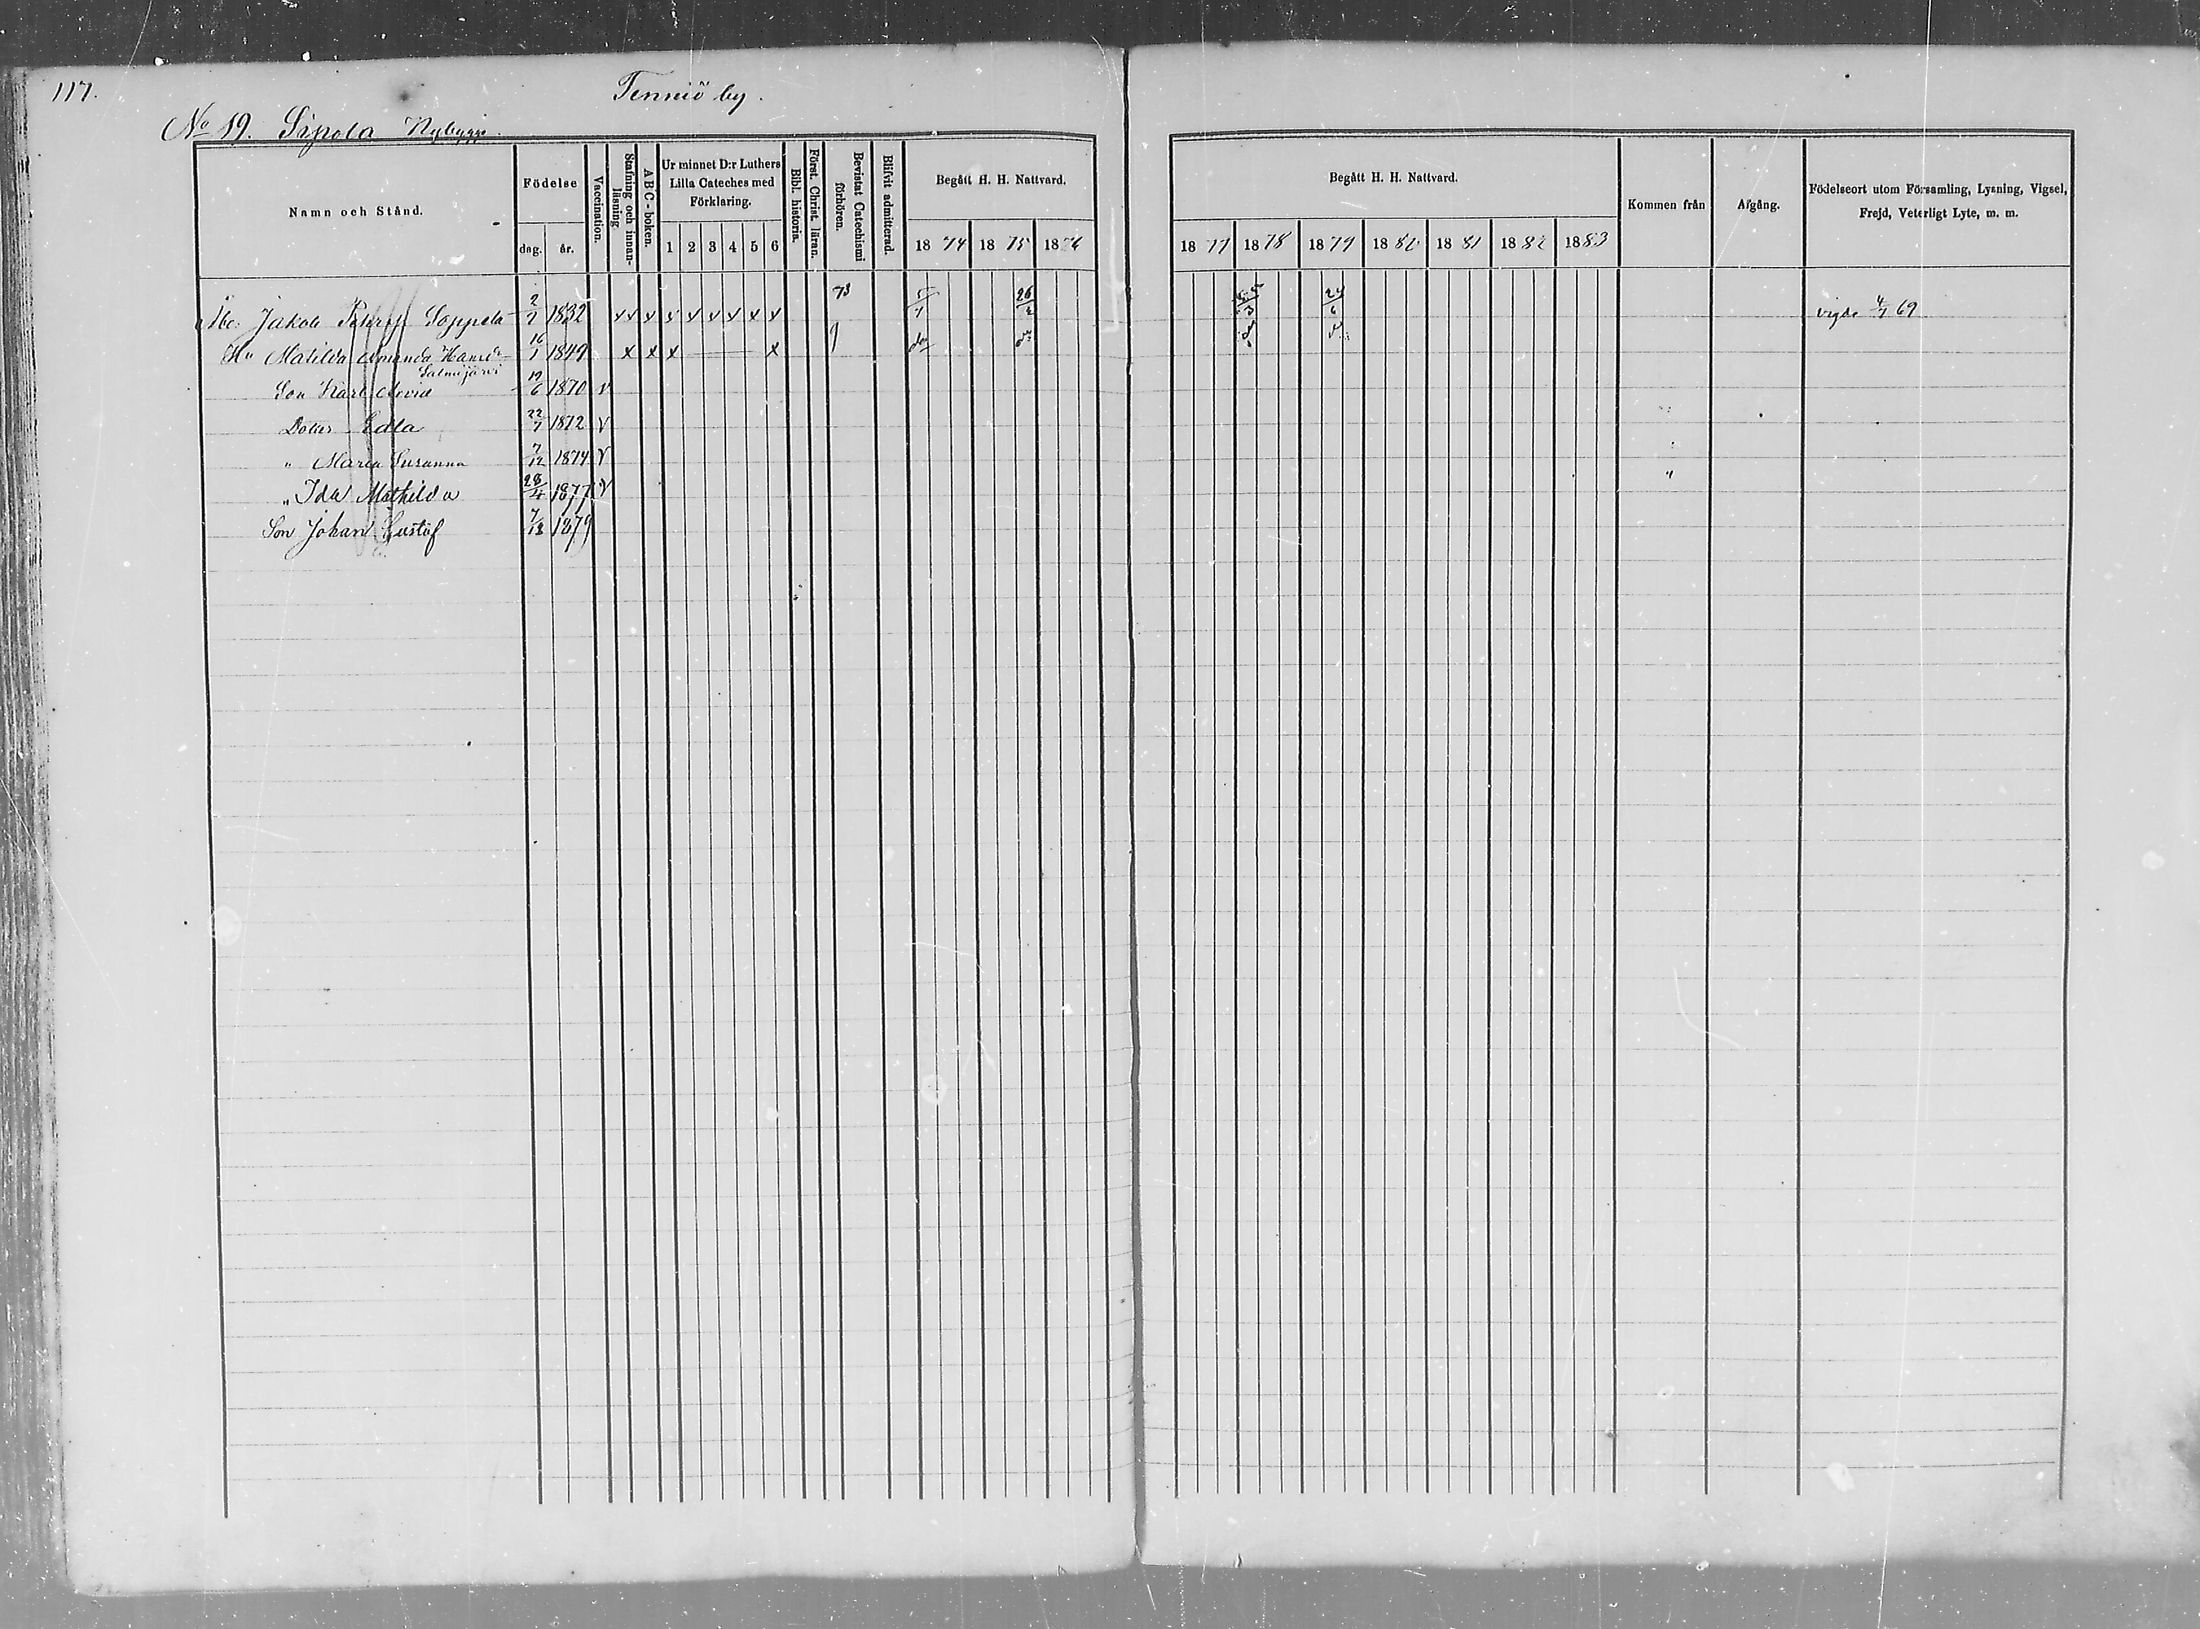 117.
Tenniö by.
No 19. Sipola Nybygge.
Namn och Stånd.
Födelse
dag. år.
Vaccination.
Stafning och innanläsning
ABC-boken.
Ur minnet D:r Luthers Lilla Cateches med Förklaring.
1 2 3 4 5 6
Bibl. historia.
Först. Christ. läran.
Bevistat Catechismi förhören.
Blifvit admitterad.
Begått H. H. Nattvard.
1874 1875 1876
Begått H. H. Nattvard.
1877 1878 1879 1880 1881 1882 1883
Kommen från
Afgång.
Födelseort utom Församling, Lysning, Vigsel, Frejd, Veterligt Lyte, m. m.
Jakob Soppela 2/7 1832 73 26/2 24/6 vigde 4/7 69
Hu Matilda Amanda Hansdr 16/1 1849
Salmijärvi
Son Karl Arvid 19/6 1870 v
Dotter Edla 22/7 1872 v
" Maria Susanna 7/12 1874 v
" Ida Mathilda 28/4 1877 v
Son Johan Gustaf 7/12 1879